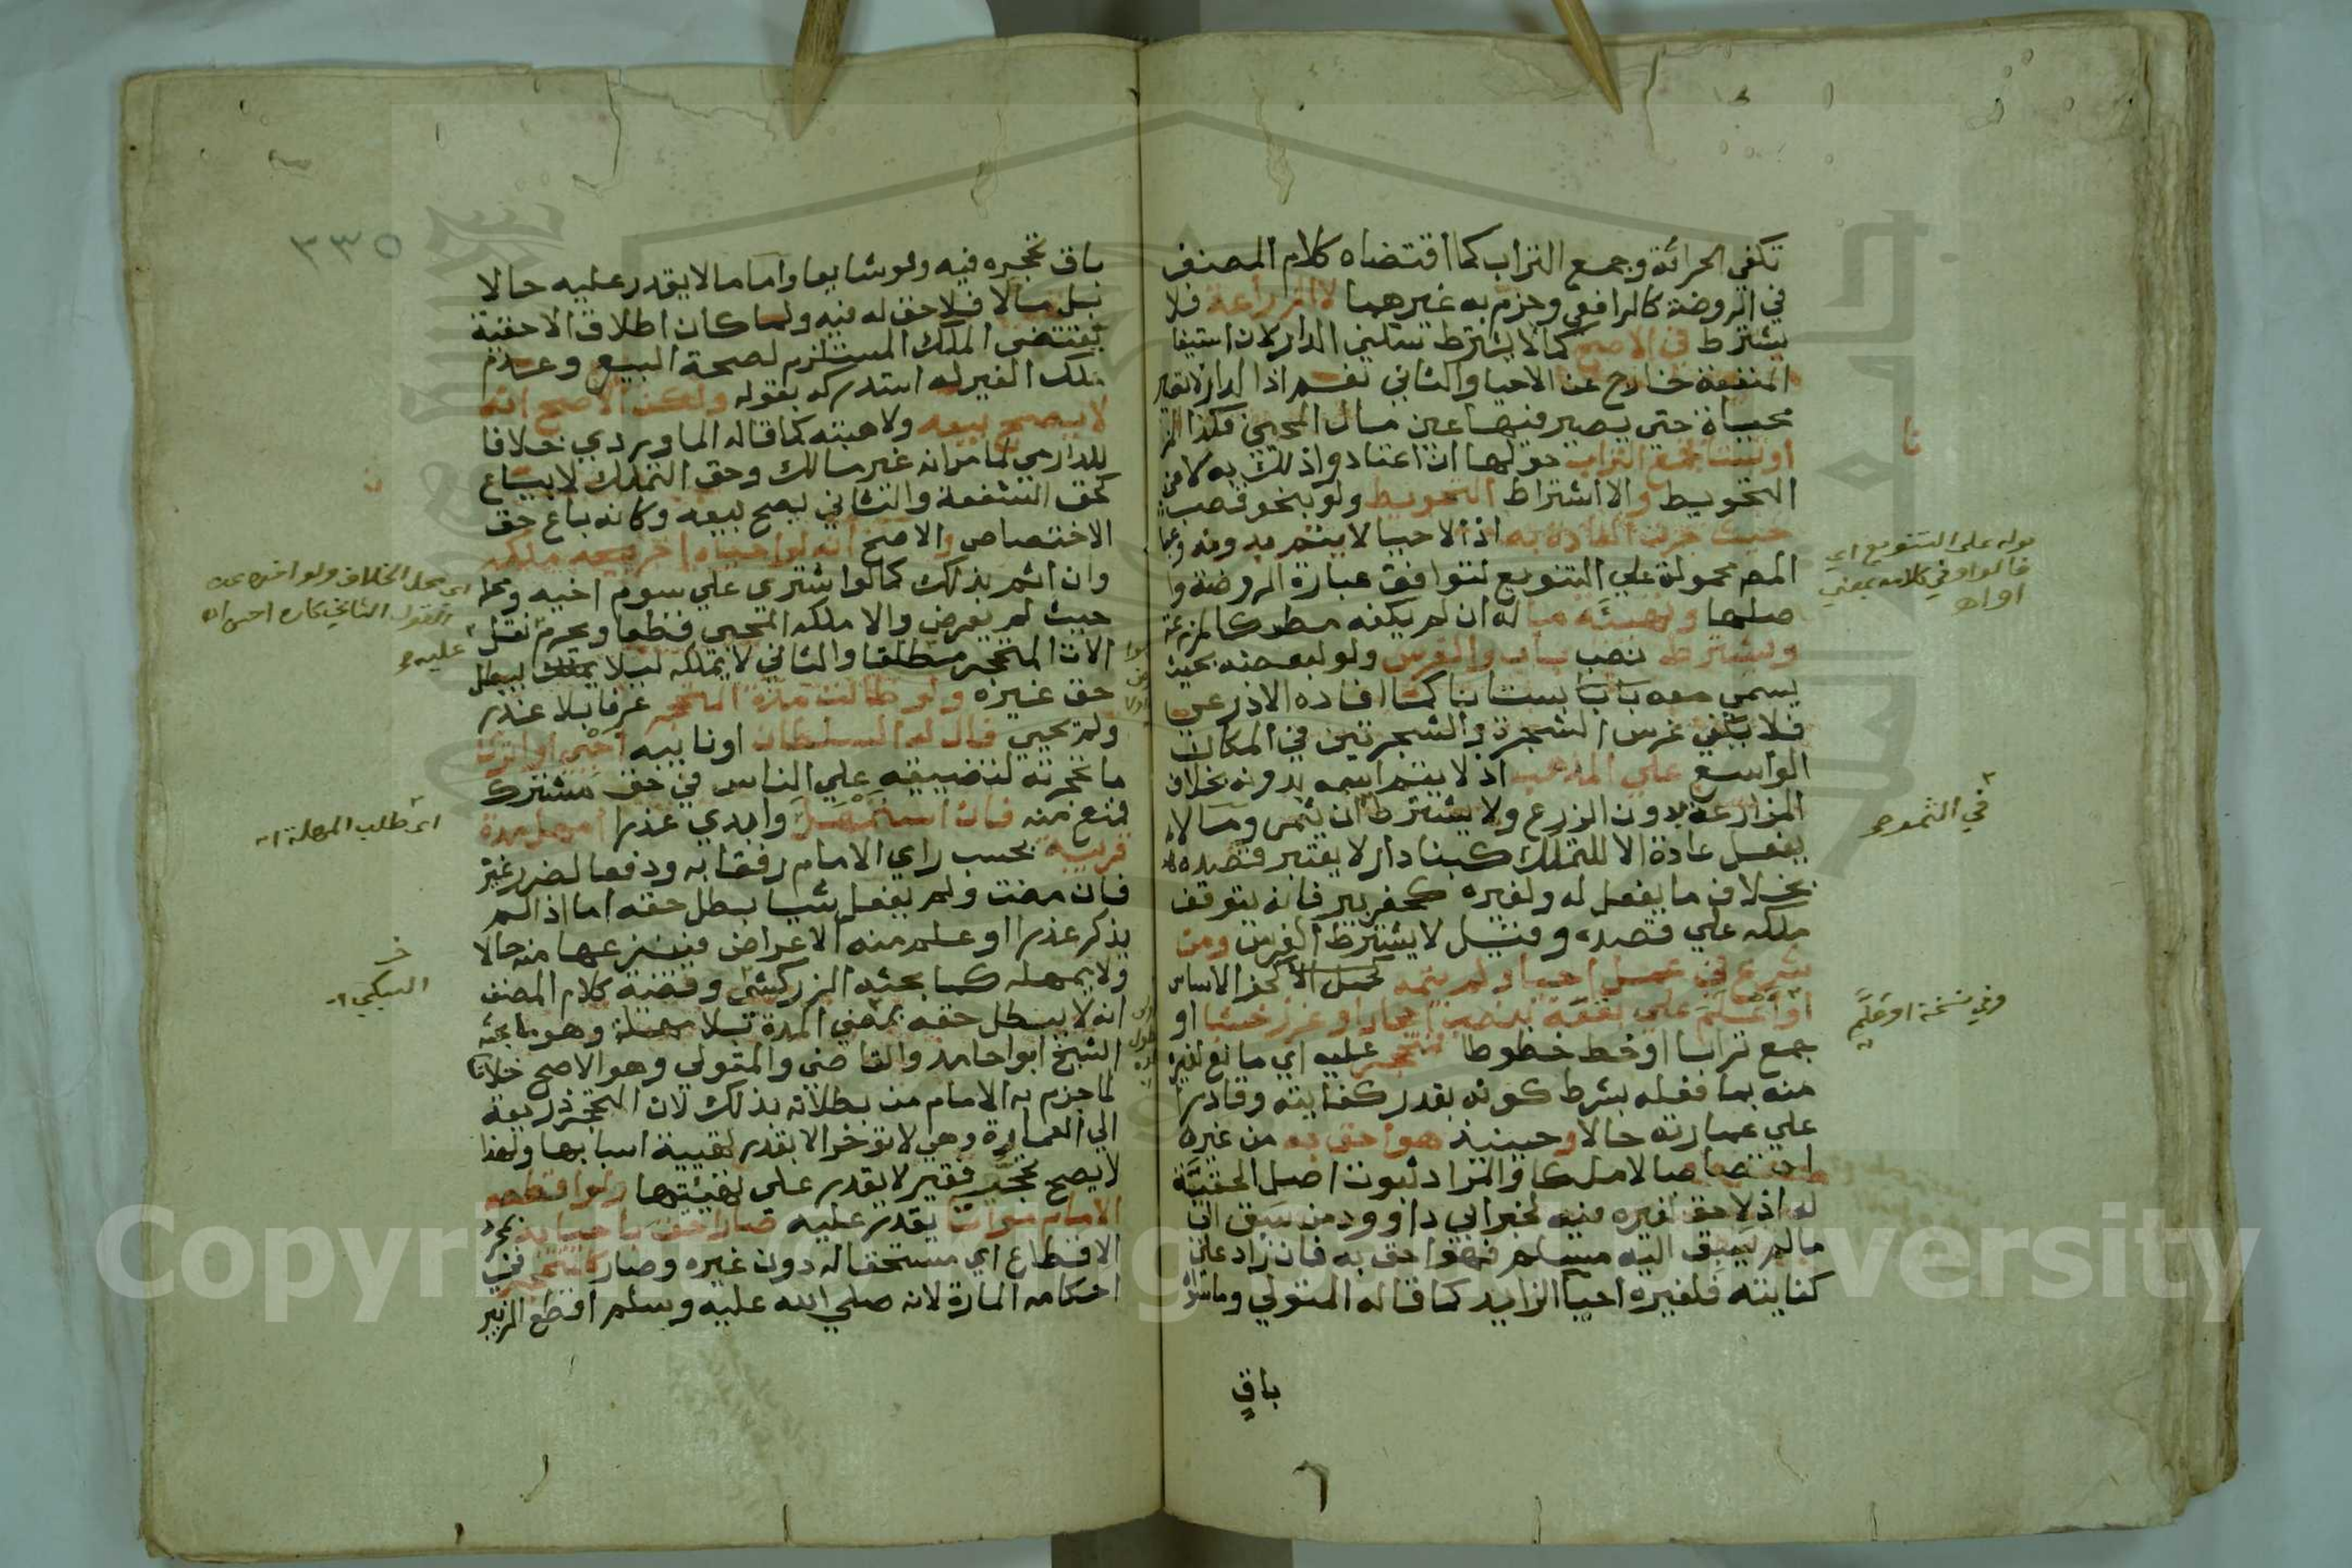 تكفي الحراثة وجمع التراب كما اقتضاه كلام المصنف
في الروضة كالرافعي وجزم به غيرهما لا الزراعة فلا
يشترط في الاصح كما لا يشترط سكني الدار لان استيفا
المنفعة خارج عن الاحيا والثاني نعم اذ الدار لا تصير
محياة حتي يصير فيها عين مال المحيي فكذا
او بستانا فجمع التراب حولها ان اعتادوا ذلك بدلا من
التحويط والا اشتراط التحويط ولو بنحو قصب
حيث جرت العادة به اذ الاحيا لا يتم بدونه وعبا
المص محمولة علي التنويع لتوافق عبارة الروضة وا
صلها وتهيئة ما له ان لم يكفه مطر كالمزرعة
ويشترط نصب باب والغرس ولو لبعضه بحيث
يسمي معه بستانا كما افاده الاذرعي
فلا يكفي غرس الشجرة والشجرتين في المكان
الواسع علي المذهب اذ لا يتم اسمه بدونه بخلاف
المزارعة بدون الزرع ولا يشترط ان يثمر وما لا
يفعل عادة الا للتملك كبنا دار لا يعتبر قصده
بخلاف ما يفعل له ولغيره كحفر بير فانه يتوقف
ملكه علي قصده وقيل لا يشترط الغرس ومن
شرع في عمل احيا ولم يتمه كحفر الاساس
او اعلم علي بقعة بنصب احجار او غرز خشبا او
جمع ترابا او خط خطوطا فتحجر عليه اي مانع لغيره
منه بما فعله بشرط كونه بقدر كفايته وقادرا
علي عمارته حالا وحينيذ هو احق به من غيره
اختصاصا لا ملكا والمراد ثبوت اصل الحقية
له اذ لا حق لغيره فيه لخبر ابي داوود من سبق الي
ما لم يسبق اليه مسلم فهو احق به فان زاد علي
كفايته فلغيره احيا الزايد كما قاله المتولي وما سواه
باقٍ
قوله علي التنويع اي
قالوا وفي كلامه بمعني
او اهـ
في الثمر
وفي نسخة او عَلَّم
٣٣٥
باق تحجره فيه ولو شايعا واما ما لا يقدر عليه حالا
بل مآلا فلا حق له فيه ولما كان اطلاق الاحقية
يقتضي الملك المستلزم لصحة البيع وعدم
ملك الغير له استدركه بقوله ولكن الاصح انه
لا يصح بيعه ولا هبته كما قاله الماوردي خلافا
للدارمي لما مر انه غير مالك وحق التملك لا يباع
كحق الشفعة والثاني يصح بيعه وكانه باع حق
الاختصاص والاصح انه لو احياه اخر ملكه
وان اثم بذلك كما لو اشتري علي سوم اخيه ومحله
حيث لم يعرض والا ملكه المحيي قطعا ويحرم نقل
الات المتحجر مطلقا والثاني لا يملكه ليلا يبطل
حق غيره ولو طالت مدة التحجر عرفا بلا عذر
ولم يحيي قال له السلطان او نايبه احيي او اترك
ما تحجرته لتضييقه علي الناس في حق مشترك
فمنع منه فان استمهل وابدي عذرا امهل مدة
قريبة بحسب راي الامام رفقا به ودفعا لضرر غيره
فان مضت ولم يفعل شيا بطل حقه اما اذا لم
يذكر عذرا او علم منه الاعراض فينزعها منه حالا
ولا يمهله كما بحثه الزركشي وقضية كلام المصنف
انه لا يبطل حقه بمضي المدة بلا مهلة وهو ما بحثه
الشيخ ابو احامد والقاضي والمتولي وهو الاصح خلافا
لما جزم به الامام من بطلانه بذلك لان التحجر ذريعة
الي العمارة وهي لا توخر الا بقدر تهيية اسبابها ولهذا
لا يصح تحجر فقير لا يقدر علي تهيئتها ولو اقطعه
الامام مواتا يقدر عليه صار احق باحيايه بمجرد
الاقطاع اي مستحقا له دون غيره وصار كالمتحجر في
احكامه المارة لانه صلي الله عليه وسلم اقطع الزبير
اي محل الخلاف
عليه
اي طلب المهلة اهـ
السبكي